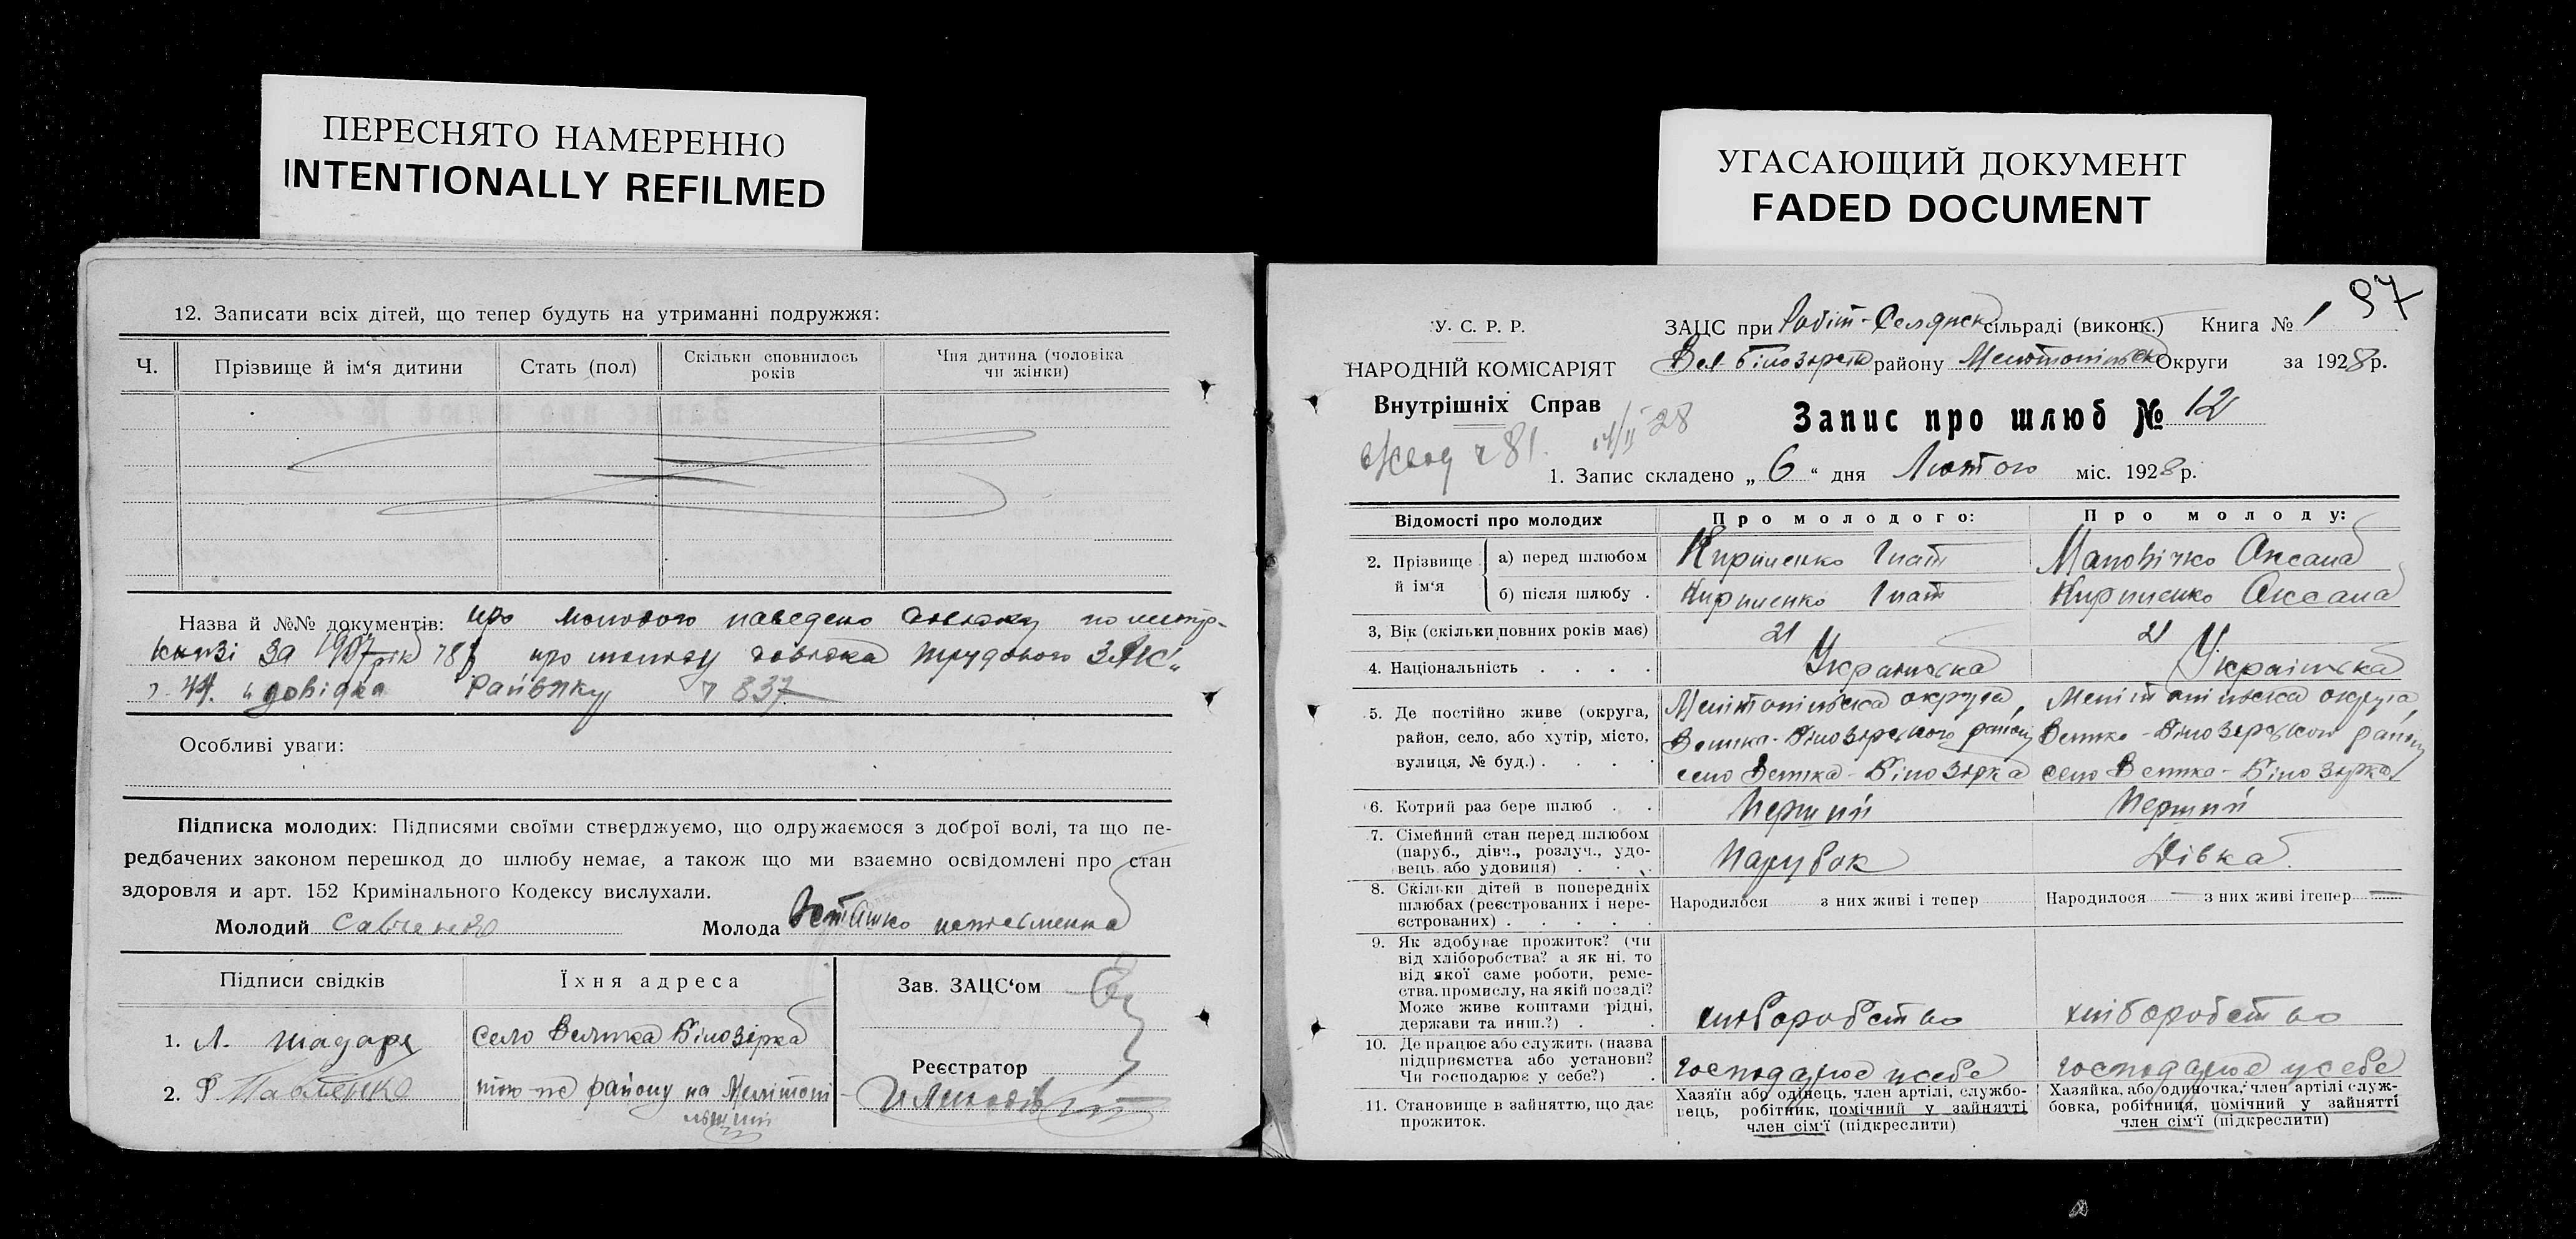 ПЕРЕСНЯТО НАМЕРЕННО
INTENTIONALLY REFILMED
12. Записати всіх дітей, що тепер будуть на утриманні подружжя:
Ч.
Прізвище й ім‘я дитини
Стать (пол)
Скільки сповнилось
років
Чия дитина (чоловіка
чи жінки)
Назва й №№ документів: про молодого наведено по метр.
книзі за 1907 рік про молоду довідка трудового ЗАГС"
44. и довідка Райвику 837
Особливі уваги:
Підписка молодих: Підписями своїми стверджуємо, що одружаємося з доброї волі, та що пе-
редбачених законом перешкод до шлюбу немає, а також що ми взаємно освідомлені про стан
здоровля и арт. 152 Кримінального Кодексу вислухали.
Молодий Савченко
Молода неписьменна
Підписи свідків
Їхня адреса
Зав. ЗАЦС‘ом
1. Л.
село Велика Білозірка
Реєстратор
2. Ф Павленко
того-же району на Мелітопі
льщині
УГАСАЮЩИЙ ДОКУМЕНТ
FADED DOCUMENT
97
У. С. Р. Р.
НАРОДНІЙ КОМІСАРІЯТ
Внутрішніх Справ
ч 81. 14/II 28
ЗАЦС при Робіт-Селянск сільраді (виконк.) Книга № 1
Вел Білозерськ району Мелітопільськ Округи за 1928 р.
Запис про шлюб № 12
1. Запис складено „ 6 “ дня Лютого міс. 1928 р.
Відомості про молодих
Про молодого:
Про молоду:
2. Прізвище й ім‘я
а) перед шлюбом
Кириленко Гнат
Оксана
б) після шлюбу
Кириленко Гнат
Кириленко Оксана
3, Вік (скільки повних років має)
21
21
4. Національність
Українська
Українська
5. Де постійно живе (округа,
район, село, або хутір, місто,
вулиця, № буд.)
Мелітопільська округа,
Велико-Білозерського району
село Велика-Білозірка
Мелітопільська округа,
Велико-Білозерського району
село Велика-Білозірка
6. Котрий раз бере шлюб
Перший
Перший
7. Сімейний стан перед шлюбом
(паруб., дівч., розлуч., удо-
вець або удовиця)
Парубок
Дівка
8. Скільки дітей в попередніх
шлюбах (реєстрованих і нере-
єстрованих)
Народилося з них живі і тепер
Народилося — з них живі ітепер —
9. Як здобуває прожиток? (чи
від хліборобства? а як ні, то
від якої саме роботи, реме-
ства, промислу, на якій посаді?
Може живе коштами рідні,
держави та инш.?)
хліборобство
хліборобство
10. Де працює або служить (назва
підприємства або установи?
Чи господарює у себе?)
господарює у себе
господарює у себе
11. Становище в зайняттю, що дає
прожиток.
Хазяїн або одінець, член артілі, службо-
вець, робітник, помічний у зайнятті
член сім‘ї (підкреслити)
Хазяйка, або одиночка, член артілі служ-
бовка, робітниця, помічний у зайнятті
член сім‘ї (підкреслити)